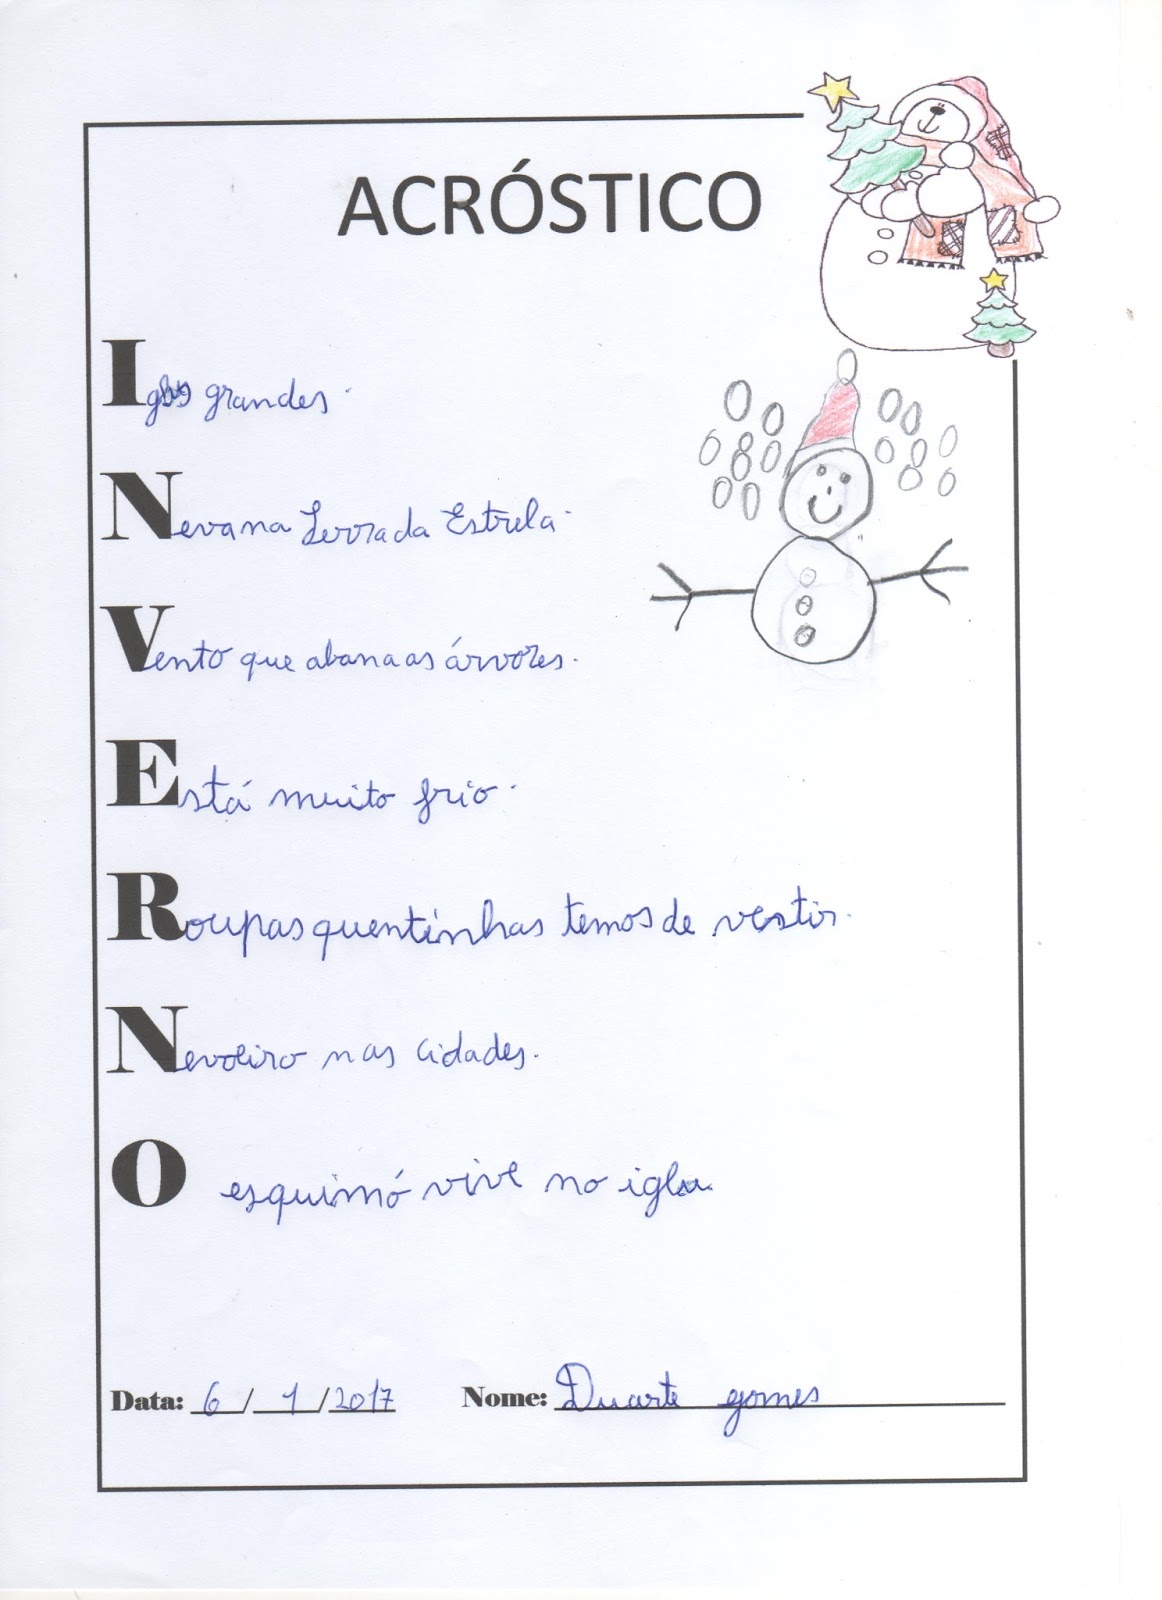 ACRÓSTICO
Iglus grandes.
Neva na Serra da Estrela.
Vento que abana as árvores.
Está muito frio.
Roupas quentinhas temos de vestir.
Nevoeiro nas cidades.
O esquimó vive no iglu.
Data: 6 / 1 / 2017 Nome: Duarte gomes